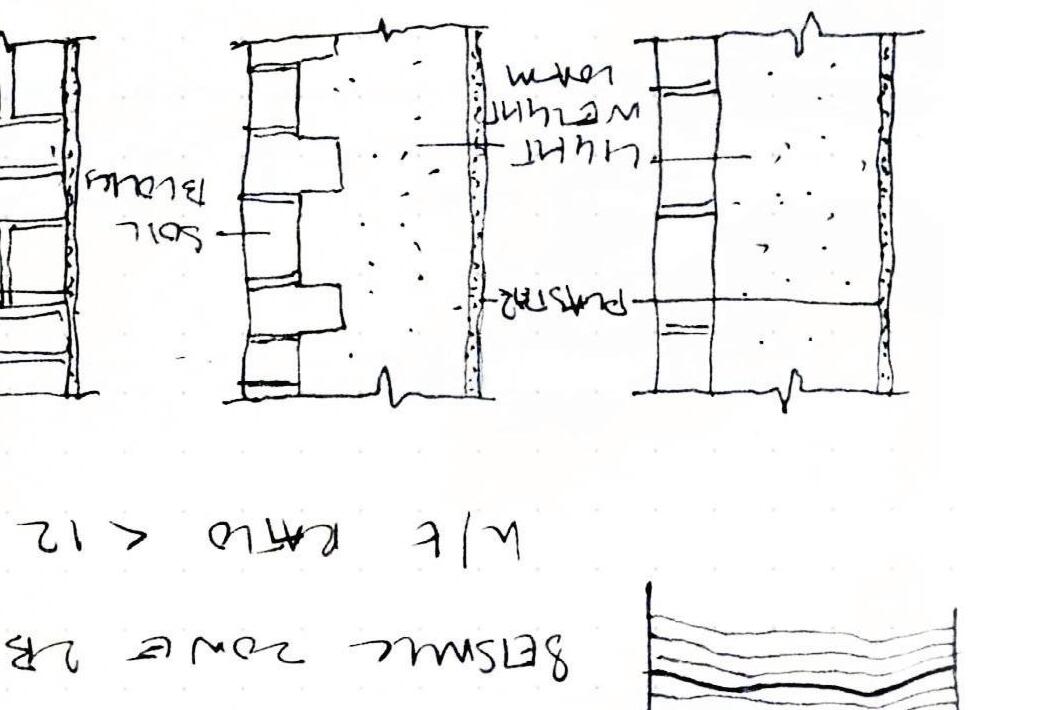 SEISMIC ZONE 2B
H/t RATIO < 12
PLASTER
LIGHT
WEIGHT
LOAM
SOIL
BLOCKS